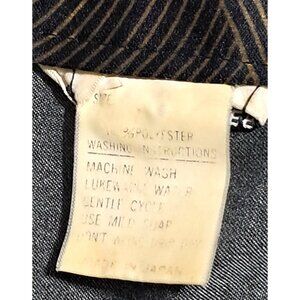 SIZE
POLYESTER
WASHING INSTRUCTIONS
MACHINE WASH
LUKEWARM WATER
GENTLE CYCLE
USE MILD SOAP
DON'T WRING DRIP DRY
MADE IN JAPAN